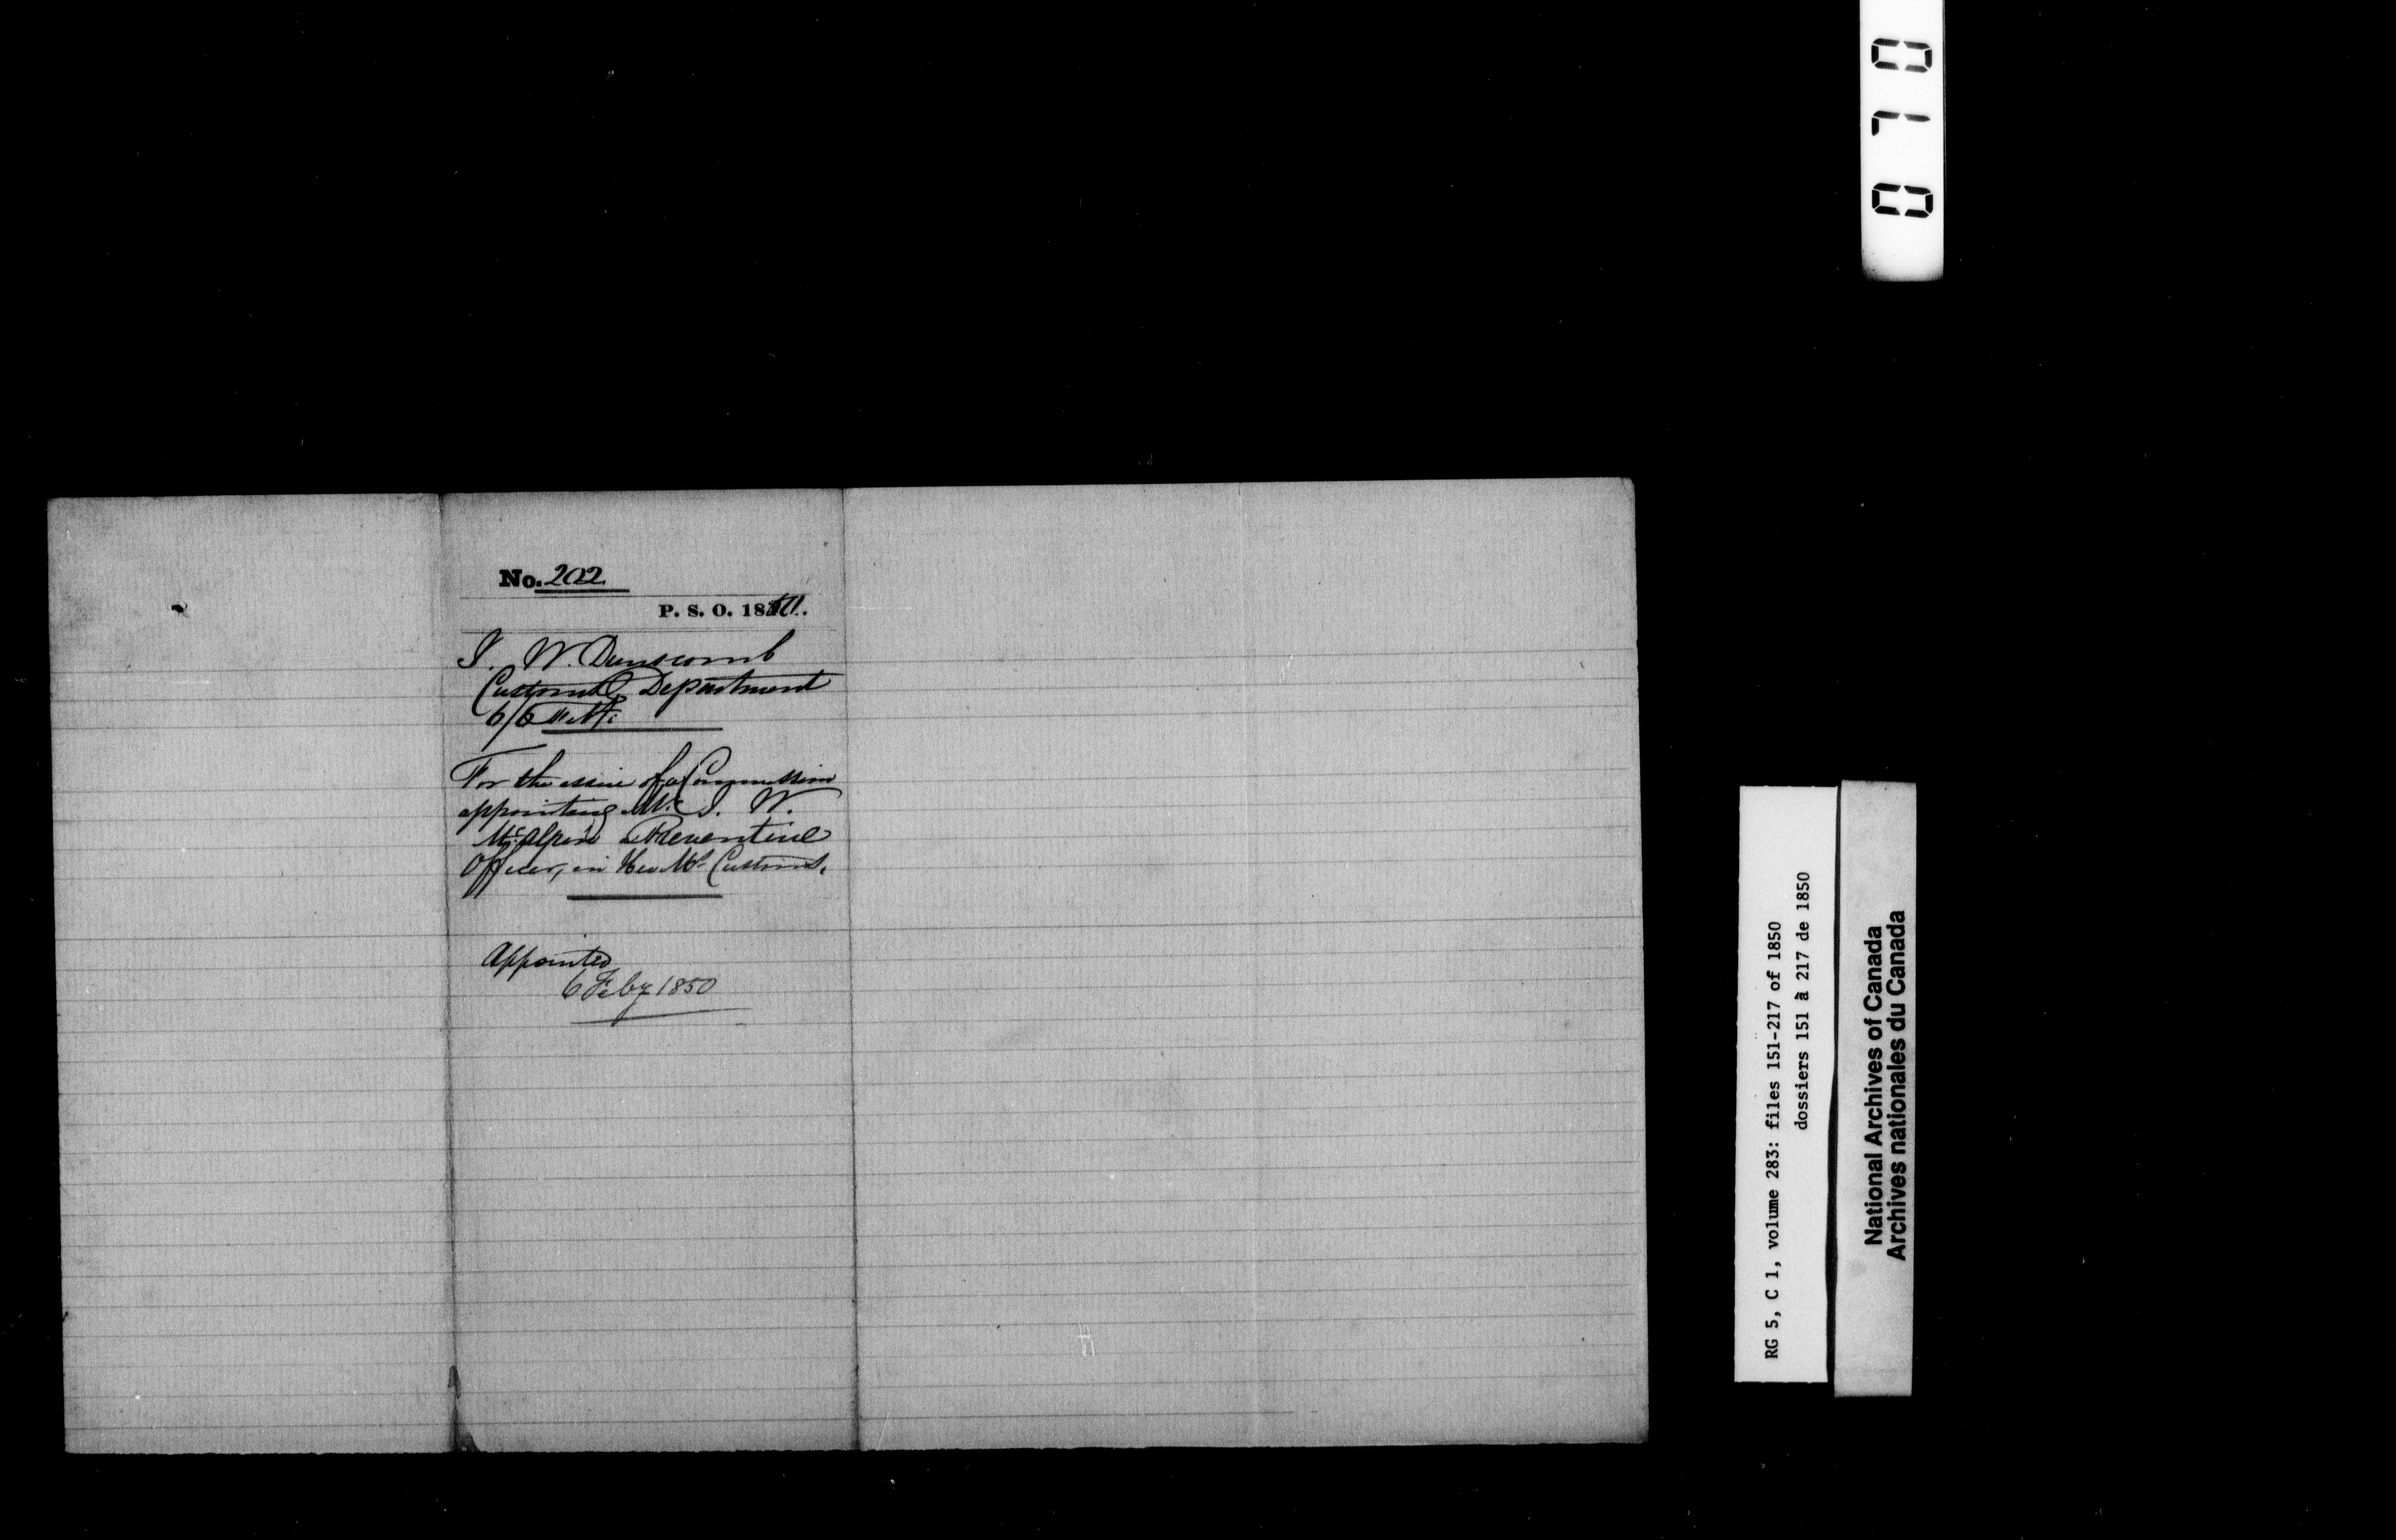 No. 202.
P. S. O. 1850.
J. W. Dunscomb
Customs Department
6/6
For the issue of a Commission
appointing Mr. J. W.
McAlpin a Preventive
Officer, in Her My. Customs.
Appointed
6 Feby 1850
0 7 0
RG 5, C 1, volume 283: files 151-217 of 1850
dossiers 151 à 217 de 1850
National Archives of Canada
Archives nationales du Canada